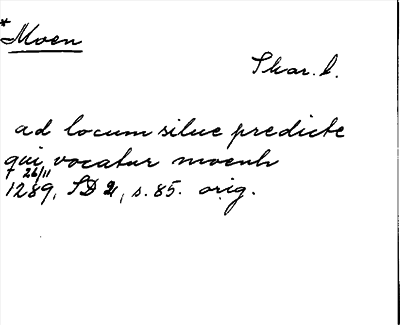 *Moen
Skar. h.
ad locum silue predicte
qui vocatur moenh
7 26/11
1289, SD 2, s. 85. orig.